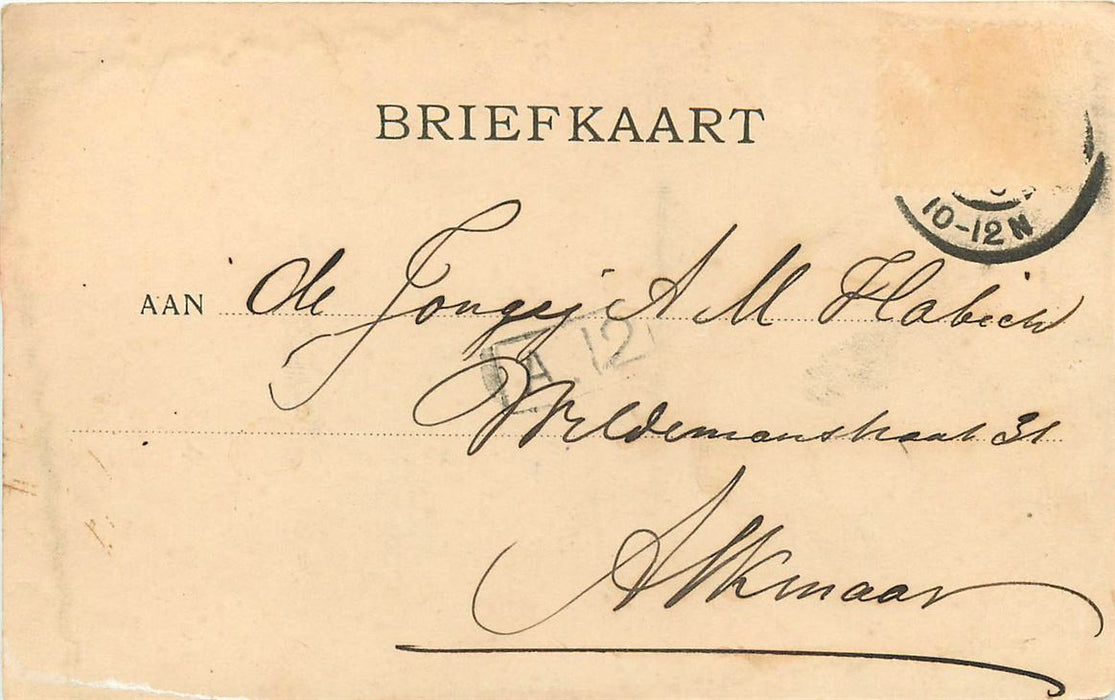 BRIEFKAART
10-12 N
AAN de Jongej A M Habich
A 12
Wildemanstraat 31
Alkmaar